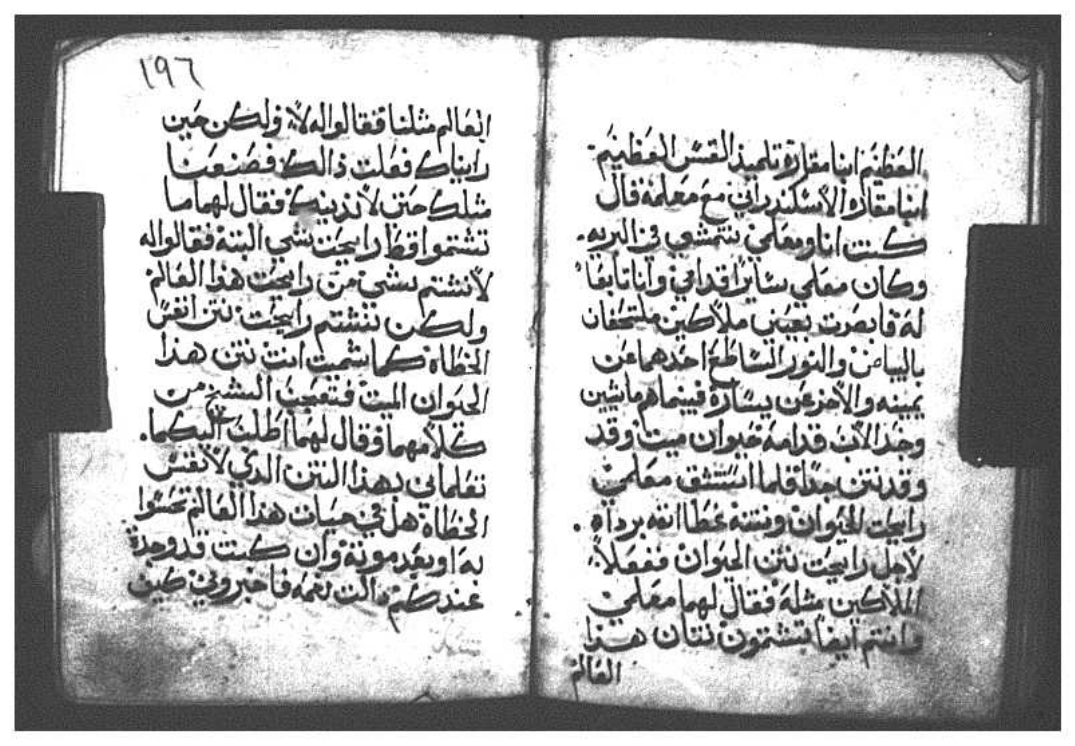 العظيم ابنا مقاره تلميذ القس العظيم
ابنا مقاره الاسكندراني مع معلمه قال
كنت انا ومعلمي نتمشي في البريه.
وكان معلمي سايرا قدامي وانا تابعا
له فابصرت بعيني ملاكين ملتحفان
بالبياض والنور الساطع احدهما عن
يمينه والاخر عن يساره فبينما هم ماشين
وجد الاب قدامه حيوان ميت وقد
وقد نتن جدا فلما استنشق معلمي
رايحت الحيوان ونتنه غطا انفه برداه.
لاجل رايحت نتن الحيوان ففعلا
الملاكين مثله فقال لهما معلمي
وانتم ايضا تشتمون نتان هذا
العالم
١٩٦
العالم مثلنا فقالوا له لا ولكن حين
رايناك فعلت ذالك فصنعنا
مثلك حتي لا فقال لهما ما
تشتموا قط رايحت شي البته فقالوا له
لا نشتم شي من رايحت هذا العالم
ولكن ننشتم رايحت نتن انفس
الخطاة كما شميت انت نتن هذا
الحيوان الميت فتعجب الشيخ من
كلامهما وقال لهما اطلب اليكما.
تعلماني بهذا النتن الذي لانفس
الخطاة هل في حيات هذا العالم تحسوا
به او بعد موته وان كنت قد وجدة
عندكم دالت نعمه فاخبروني كيف